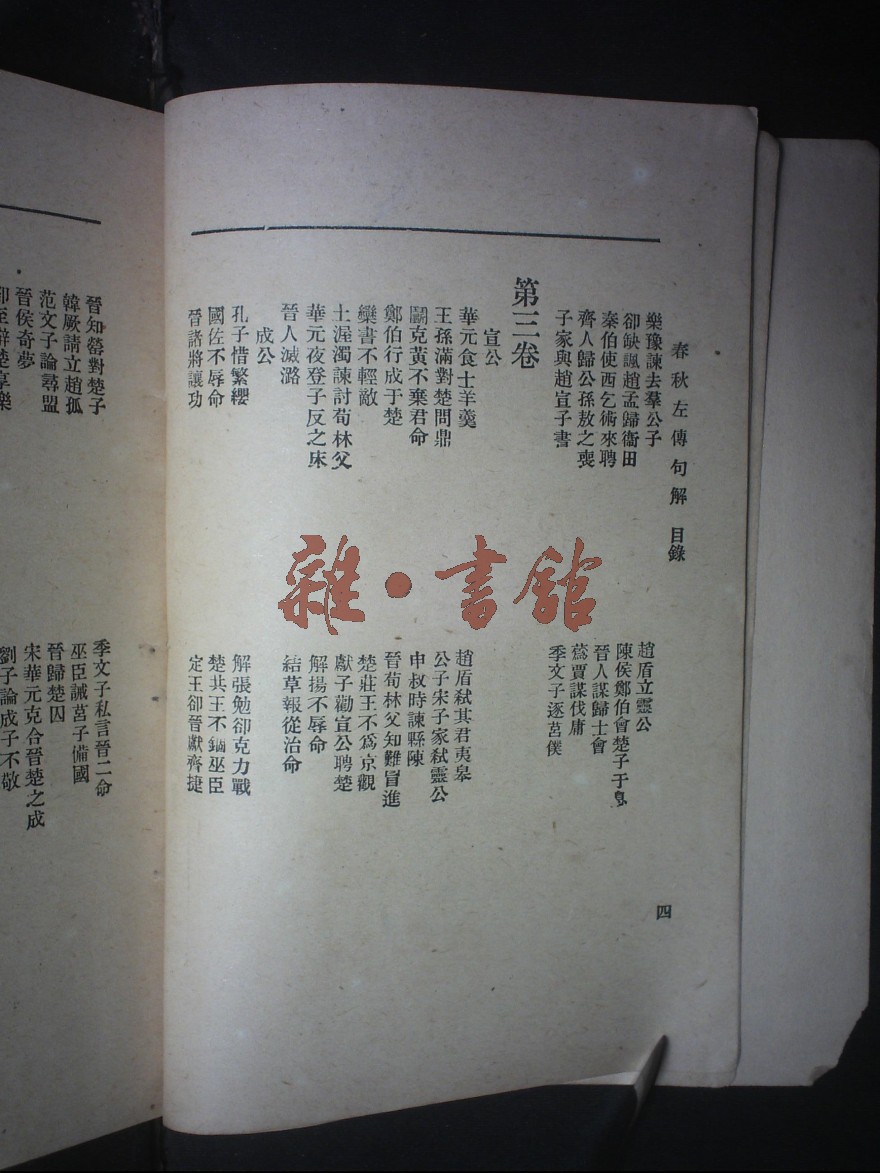 春秋左傳句解 目錄
四
樂豫諫去羣公子
趙盾立靈公
卻缺諷趙孟歸衞田
陳侯鄭伯會楚子于息
秦伯使西乞術來聘
晉人謀歸士會
齊人歸公孫敖之喪
蔿賈謀伐庸
子家與趙宣子書
季文子逐莒僕
第三卷
宣公
華元食士羊羹
趙盾弒其君夷皋
王孫滿對楚問鼎
公子宋子家弒靈公
鬭克黃不棄君命
申叔時諫縣陳
鄭伯行成于楚
晉荀林父知難冒進
欒書不輕敵
楚莊王不爲京觀
士渥濁諫討荀林父
獻子勸宣公聘楚
華元夜登子反之床
解揚不辱命
晉人滅潞
結草報從治命
成公
孔子惜繁纓
解張勉卻克力戰
國佐不辱命
楚共王不錮巫臣
晉諸將讓功
定王卻晉獻齊捷
晉知罃對楚子
季文子私言晉二命
韓厥請立趙孤
巫臣誡莒子備國
范文子論尋盟
晉歸楚囚
晉侯奇夢
宋華元克合晉楚之成
卻至辭楚享樂
劉子論成子不敬
雜·書館